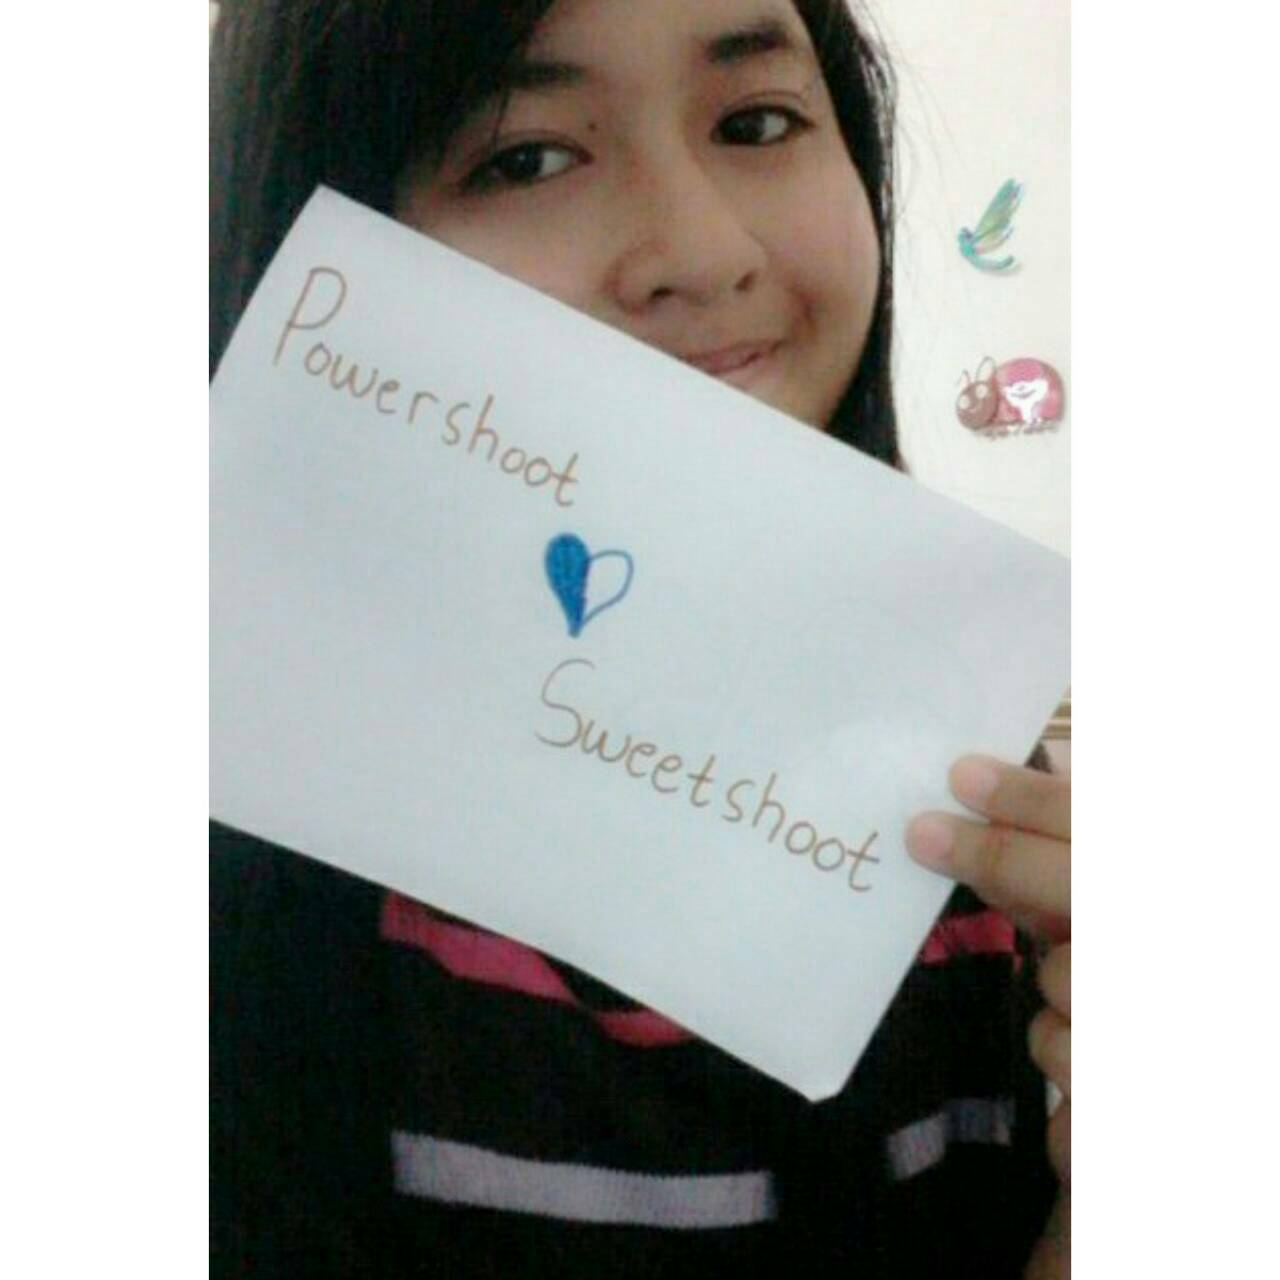 Powershoot
Sweetshoot